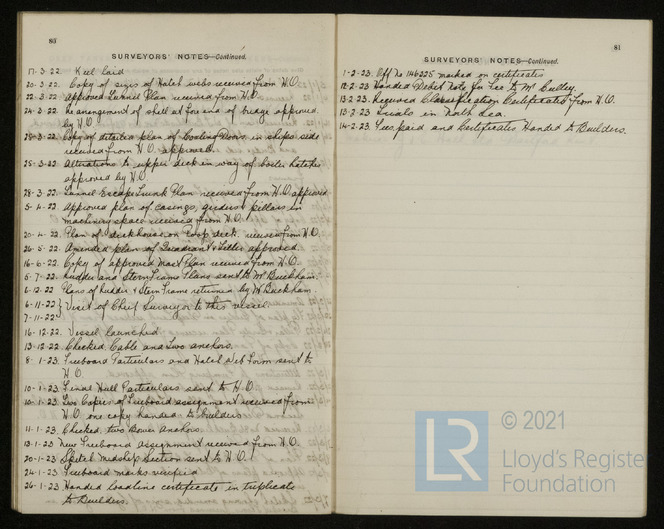 80
SURVEYORS' NOTES—Continued.
17-3-22. Keel laid
20-3-22. Copy of sizes of Hatch webs received from H.O.
22-3-22. Approved Tunnel Plan received from H.O.
24-3-22. Rearrangement of shell at fore end of bridge approved
by H.O.
25-3-22. Copy of detailed plan of Coaling Doors in ships side
received from H.O. approved.
25-3-22. Alterations to upper deck in way of boiler hatches
approved by H.O.
28-3-22. Tunnel Escape Trunk Plan received from H.O. approved
5-4-22. Approved plan of casings, girders & pillars in
machinery space received from H.O.
20-4-22. Plan of deckhouse on Poop deck. received from H.O.
26-5-22. Amended plan of Quadrant & Tiller approved.
16-6-22. Copy of approved Mast Plan received from H.O.
5-7-22. Rudder and Stern Frame Plans sent to Mr Buckham.
6-12-22 Plans of Rudder & Stern Frame returned by Mr Buckham
6-11-22 } Visit of Chief Surveyor to this vessel.
7-11-22
16-12-22. Vessel launched
13-12-22. Checked, Cable and two anchors.
8-1-23. Freeboard Particulars and Hatch Web Form sent to
H.O.
10-1-23. Final Hull Particulars sent to H.O.
10-1-23. Two Copies of Freeboard assignment received from
H.O. one copy handed to builders
11-1-23. Checked, two Bower Anchors.
13-1-23 New Freeboard Assignment received from H.O.
20-1-23 Sketch Midship Section sent to H.O.
24-1-23 Freeboard marks verified
26-1-23 Handed Loadline certificate in triplicate
to Builders.
81
SURVEYORS' NOTES—Continued.
1-2-23. Off No 146225 marked on certificates
12-2-23. Handed Debit Note for Fees to Mr Culley.
13-2-23. Received Classification Certificates from H.O.
13-2-23. Trials in North Sea.
14-2-23. Fees paid and Certificates Handed to Builders.
LR
© 2021
Lloyd's Register
Foundation